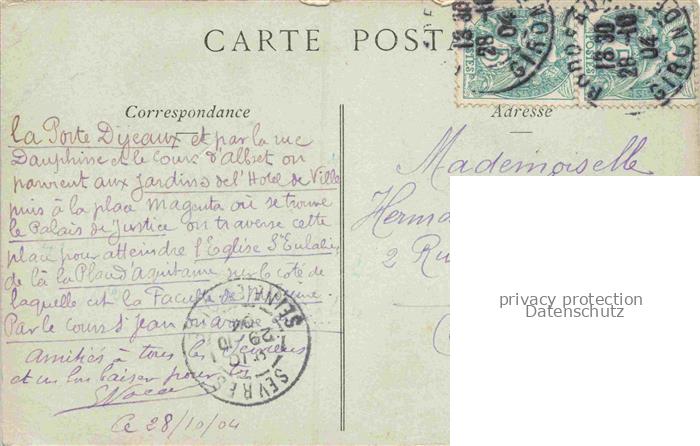 CARTE POSTA
Correspondance
Adresse
la Porte Dijeaux et par la rue
Dauphine et le cours d'Albret on
parvient aux Jardins de l'Hotel de Ville
puis à la place Magenta où se trouve
le Palais de Justice on traverse cette
place pour atteindre l'Eglise Ste Eulalie,
de là la Place d'Aquitaine sur le coté de
laquelle est la Faculté de Médecine.
Par le cours St Jean on arrive
Amitiés à tous les
et un bon baiser pour toi
Ce 28/10/04
Mademoiselle
Herma
2 Ru
BORDEAUX
18 30
28 10
04
GIRONDE
SEVRES
29 10
04
SEINE
privacy protection
Datenschutz